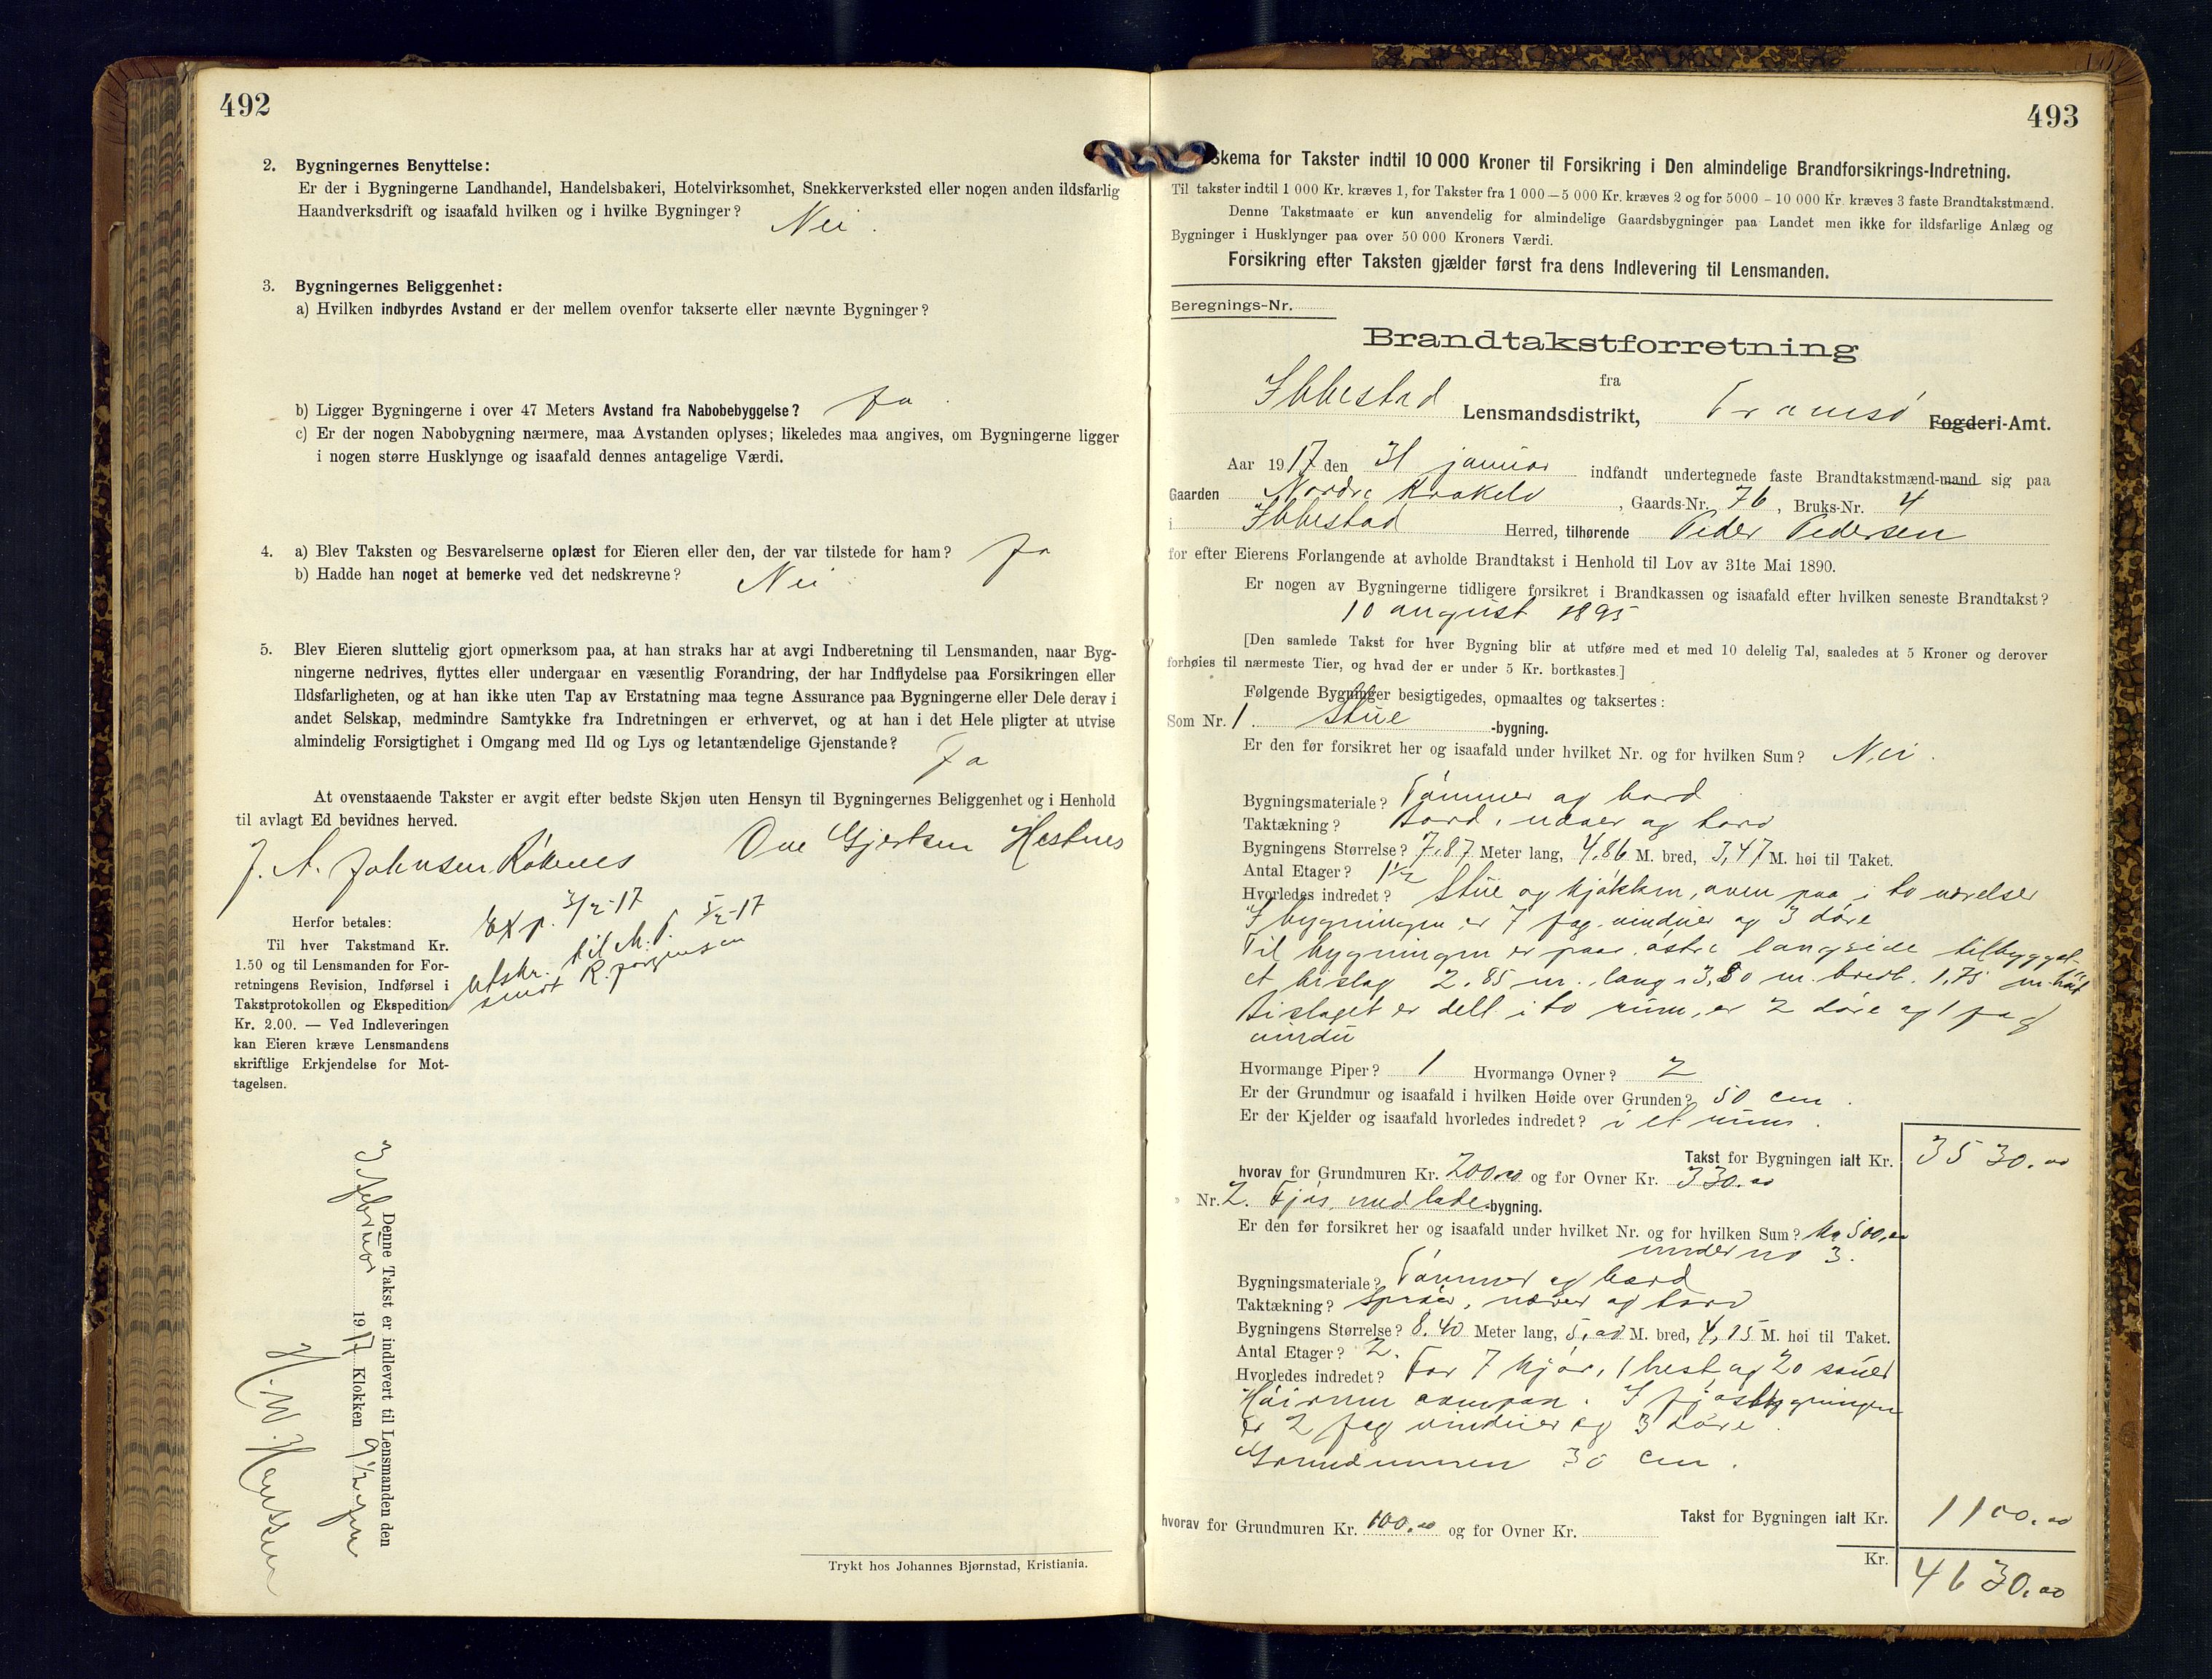 492
2. Bygningernes Benyttelse:
Er der i Bygningerne Landhandel, Handelsbakeri, Hotelvirksomhet, Snekkerverksted eller nogen anden ildsfarlig
Haandverksdrift og isaafald hvilken og i hvilke Bygninger? Nei.
3. Bygningernes Beliggenhet:
a) Hvilken indbyrdes Avstand er der mellem ovenfor takserte eller nævnte Bygninger?
b) Ligger Bygningerne i over 47 Meters Avstand fra Nabobebyggelse? Ja.
c) Er der nogen Nabobygning nærmere, maa Avstanden oplyses; likeledes maa angives, om Bygningerne ligger
i nogen større Husklynge og isaafald dennes antagelige Værdi.
4. a) Blev Taksten og Besvarelserne oplæst for Eieren eller den, der var tilstede for ham? Ja
b) Hadde han noget at bemerke ved det nedskrevne? Nei
5. Blev Eieren sluttelig gjort opmerksom paa, at han straks har at avgi Indberetning til Lensmanden, naar Byg-
ningerne nedrives, flyttes eller undergaar en væsentlig Forandring, der har Indflydelse paa Forsikringen eller
Ildsfarligheten, og at han ikke uten Tap av Erstatning maa tegne Assurance paa Bygningerne eller Dele derav i
andet Selskap, medmindre Samtykke fra Indretningen er erhvervet, og at han i det Hele pligter at utvise
almindelig Forsigtighet i Omgang med Ild og Lys og letantændelige Gjenstande? Ja
At ovenstaaende Takster er avgit efter bedste Skjøn uten Hensyn til Bygningernes Beliggenhet og i Henhold
til avlagt Ed bevidnes herved.
J. A. Johnsen Røkenes Ove Gjertsen Hestnes
Exp. 3/2-17
utskr. til M. f. 5/2-17
sendt R. Jørgensen
Herfor betales:
Til hver Takstmand Kr.
1.50 og til Lensmanden for For-
retningens Revision, Indførsel i
Takstprotokollen og Ekspedition
Kr. 2.00. — Ved Indleveringen
kan Eieren kræve Lensmandens
skriftlige Erkjendelse for Mot-
tagelsen.
Denne Takst er indlevert til Lensmanden den
3 februar 1917 Klokken 9 1/2 fm
H. W. Hanssen
Trykt hos Johannes Bjørnstad, Kristiania.
493
Skema for Takster indtil 10 000 Kroner til Forsikring i Den almindelige Brandforsikrings-Indretning.
Til takster indtil 1 000 Kr. kræves 1, for Takster fra 1 000—5 000 Kr. kræves 2 og for 5000 - 10 000 Kr. kræves 3 faste Brandtakstmænd.
Denne Takstmaate er kun anvendelig for almindelige Gaardsbygninger paa Landet men ikke for ildsfarlige Anlæg og
Bygninger i Husklynger paa over 50 000 Kroners Værdi.
Forsikring efter Taksten gjælder først fra dens Indlevering til Lensmanden.
Beregnings-Nr.
Brandtakstforretning
fra
Ibbestad Lensmandsdistrikt, Tromsø Fogderi-Amt.
Aar 1917 den 31 januar indfandt undertegnede faste Brandtakstmænd-mand sig paa
Gaarden Nordre Krokelv, Gaards-Nr. 76, Bruks-Nr. 4
i Ibbestad Herred, tilhørende Peder Pedersen
for efter Eierens Forlangende at avholde Brandtakst i Henhold til Lov av 31te Mai 1890.
Er nogen av Bygningerne tidligere forsikret i Brandkassen og isaafald efter hvilken seneste Brandtakst?
10 august 1895
[Den samlede Takst for hver Bygning blir at utføre med et med 10 delelig Tal, saaledes at 5 Kroner og derover
forhøies til nærmeste Tier, og hvad der er under 5 Kr. bortkastes.]
Følgende Bygninger besigtigedes, opmaaltes og taksertes:
Som Nr. 1. Stue-bygning.
Er den før forsikret her og isaafald under hvilket Nr. og for hvilken Sum? Nei.
Bygningsmateriale? Tømmer og bord
Taktækning? Bord, næver og torv
Bygningens Størrelse? 7,87 Meter lang, 4,86 M. bred, 3,47 M. høi til Taket.
Antal Etager? 1 1/2
Hvorledes indredet? Stue og kjøkken, oven paa i to værelser
I bygningen er 7 fag vinduer og 3 døre
Til bygningen er paa østre langside tilbygget
et bislag 2,85 m. lang, 3,80 m. bredt, 1,75 m. høit
Bislaget er delt i to rum, er 2 døre og 1 fag
vindu
Hvormange Piper? 1 Hvormange Ovner? 2
Er der Grundmur og isaafald i hvilken Høide over Grunden? 50 cm.
Er der Kjelder og isaafald hvorledes indredet? i et rum.
Takst for Bygningen ialt Kr. 3530.00
hvorav for Grundmuren Kr. 200.00 og for Ovner Kr. 330.00
Nr. 2. Fjøs med lade-bygning.
Er den før forsikret her og isaafald under hvilket Nr. og for hvilken Sum? Kr 500,00
under no 3.
Bygningsmateriale? Tømmer og bord
Taktækning? næver og torv
Bygningens Størrelse? 8,40 Meter lang, 5,00 M. bred, 4,15 M. høi til Taket.
Antal Etager? 2.
Hvorledes indredet? For 7 kjør, 1 hest og 20 sauer
Høirum ovenpaa. I fjøsbygningen
er 2 fag vinduer og 3 døre.
Grundmuren 30 cm.
Takst for Bygningen ialt Kr. 1100.00
hvorav for Grundmuren Kr. 100.00 og for Ovner Kr.
Kr. 4630.00